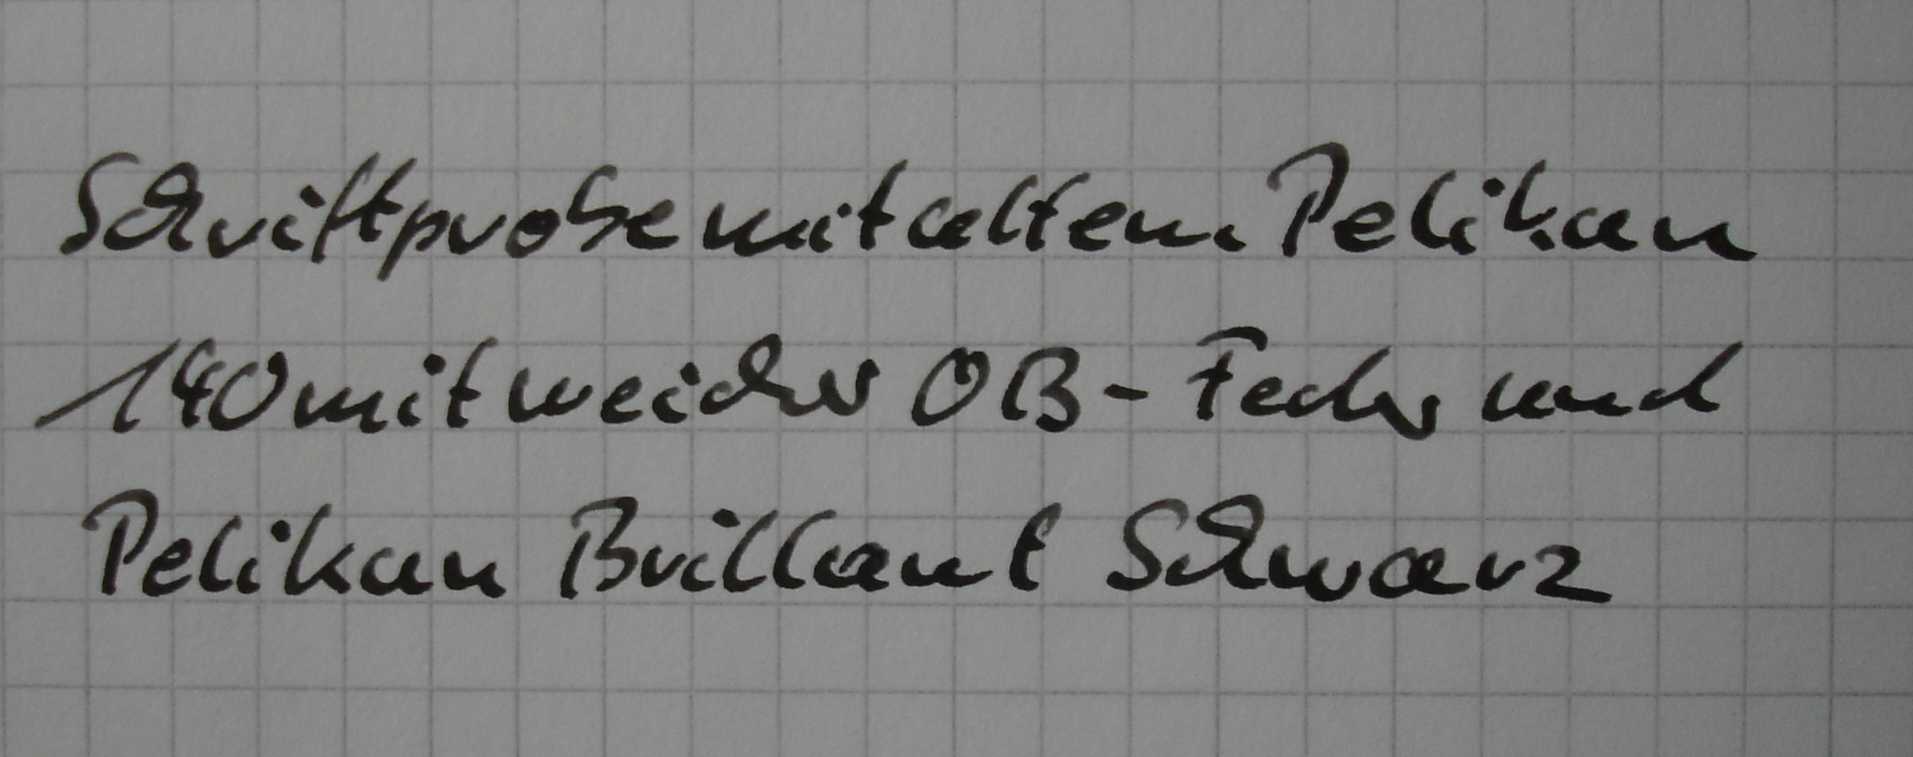 Schriftprobe mit altem Pelikan
140 mit weicher OB-Feder und
Pelikan Brillant Schwarz